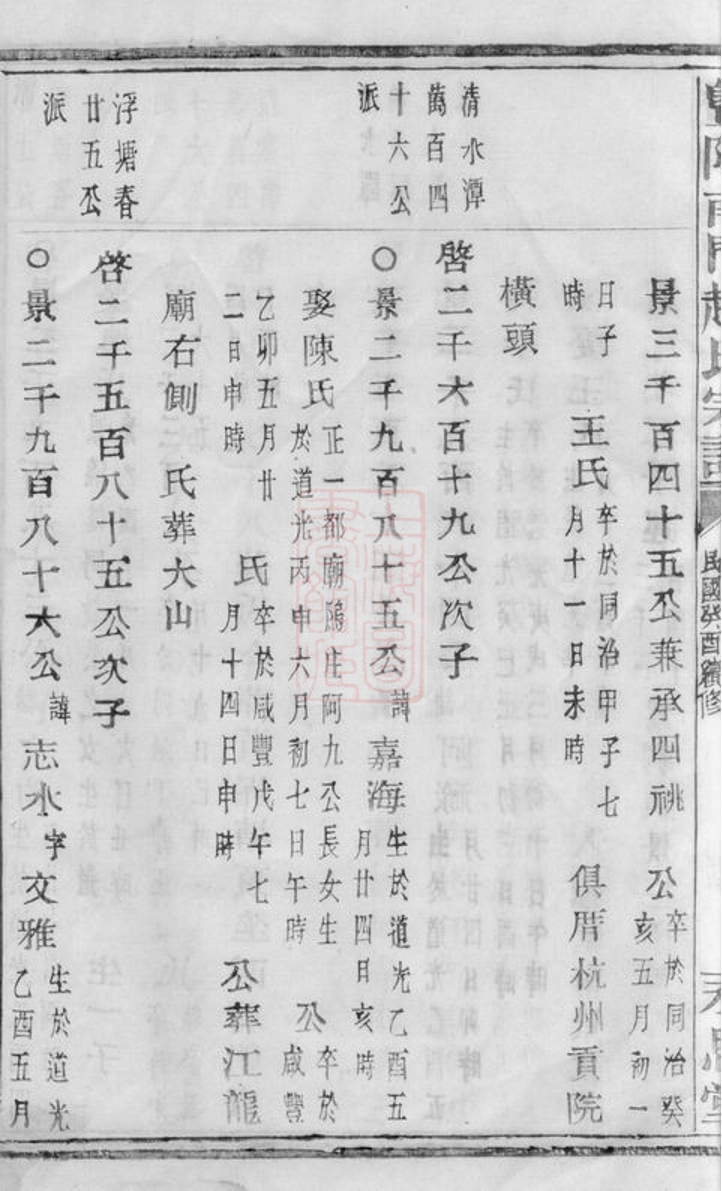 暨陽南門趙氏宗譜
民國癸酉續修
景三千百四十五公兼承四祧 公卒於同治癸
亥五月初一
日子
時 王氏卒於同治甲子七
月十一日未時 俱厝杭州貢院
橫頭
清水潭
萬百四
十六公
派
啓二千六百十九公次子
○景二千九百八十五公諱嘉海生於道光乙酉五
月廿四日亥時
娶陳氏正一都廟隖庄阿九公長女生
於道光丙申六月初七日午時 公卒於
咸豐
乙卯五月廿
二日申時 氏卒於咸豐戊午七
月十四日申時 公葬江龍
廟右側 氏葬大山
浮塘春
廿五公
派
啓二千五百八十五公次子
○景二千九百八十六公諱志水字文雅生於道光
乙酉五月